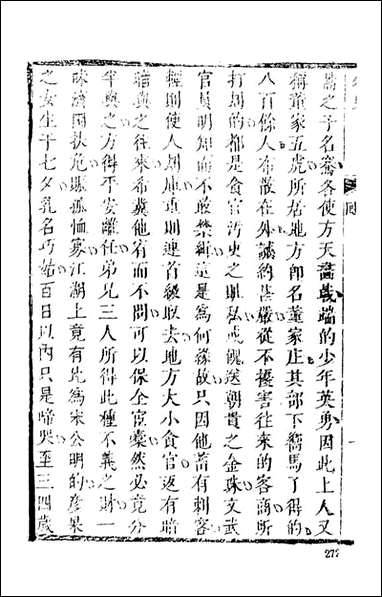 喬之子名喬各使方天畫戟端的少年英勇因此上人又
稱董家五虎所居地方卽名董家庄其部下嚮馬了得的
八百餘人布散在外誡約甚嚴從不擾害往來的客商所
打刼的都是貪官汚吏之賍私或餽送朝貴之金珠文武
官員明知而不敢禁緝這是爲何緣故只因他蓄有刺客
輕則使人刼庫重則連首級取去地方大小貪官返有暗
暗與之往來希冀他有而不問可以保全宦橐然必竟分
半與之方得平安離任弟兄三人所得此種不義之財一
味濟困扶危賑孤恤寡江湖上竟有比爲宋公明的彦杲
之女生于七夕乳名巧姑百日以內只是啼哭至三四歲
272